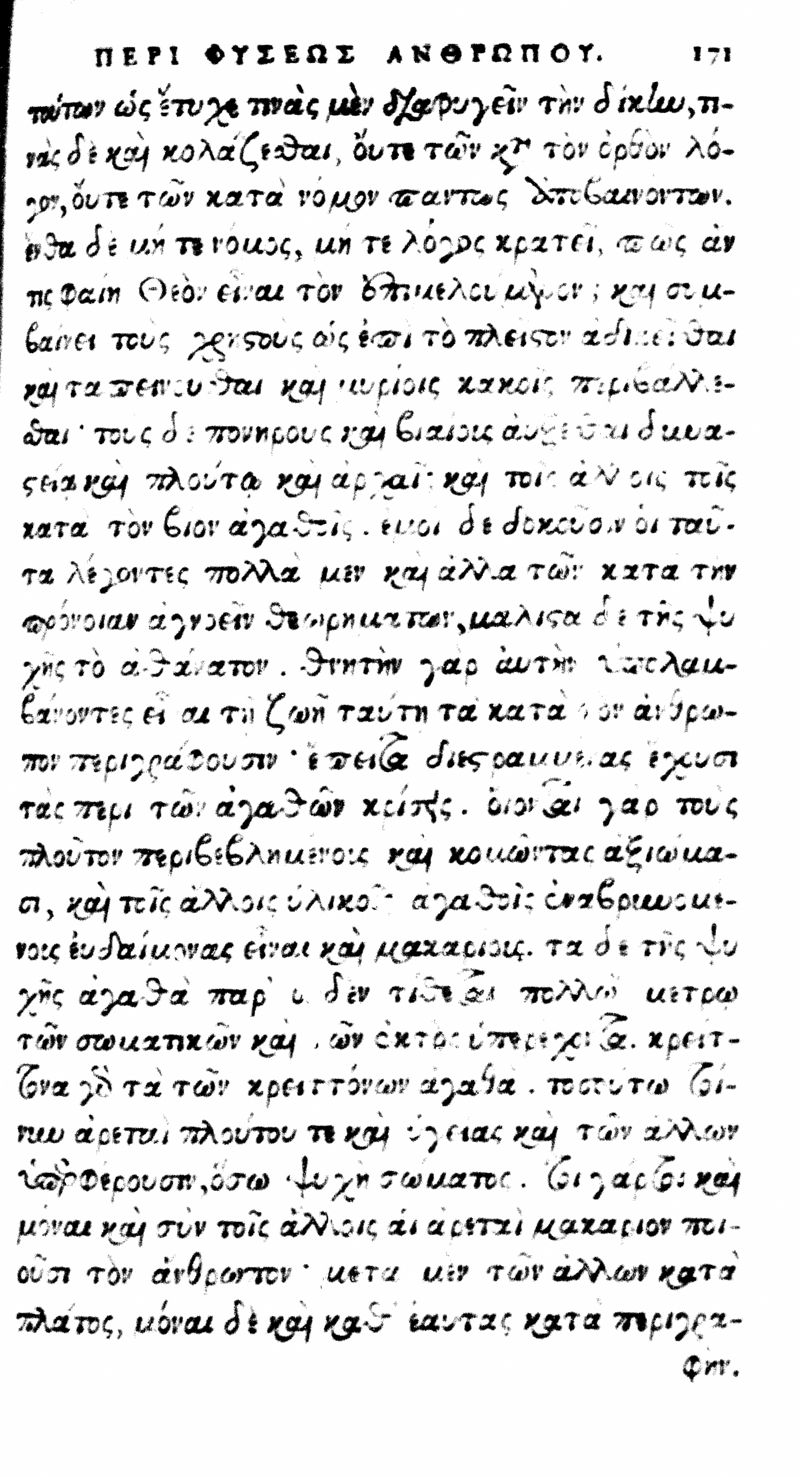 ΠΕΡΙ ΦΥΣΕΩΣ ΑΝΘΡΩΠΟΥ. 171
τούτων ὡς ἔτυχε τινὰς μὲν διαφυγεῖν τὴν δίκην, τι-
νὰς δὲ καὶ κολάζεσθαι, ὄυτε τῶν κατὰ τὸν ὀρθὸν λό-
γον, ὄυτε τῶν κατὰ νόμον παντως ἀποβαινοντων.
ἔνθα δὲ μή τε νόμος, μή τε λόγος κρατεῖ, πῶς ἀν
τις φαίη Θεὸν εἶναι τὸν ἐπιμελούμενον; καὶ συμ-
βαίνει τοὺς χρηστοὺς ὡς ἐπι τὸ πλεῖστον ἀδικεῖσθαι
καὶ ταπεινοῦσθαι καὶ μυρίοις κακοῖς περιβάλλε-
σθαι· τοὺς δὲ πονηροὺς καὶ βιαίοις ἀυξεσθαι δυνα-
στεία καὶ πλούτῳ καὶ ἀρχαῖς καὶ τοῖς ἄλλοις τοῖς
κατὰ τὸν βίον ἀγαθοῖς. ἐμοὶ δὲ δοκοῦσιν ὁι ταῦ-
τα λέγοντες πολλὰ μὲν καὶ ἄλλα τῶν κατὰ τὴν
πρόνοιαν ἀγνοεῖν θεωρημάτων, μάλιστα δὲ τῆς ψυ
χῆς τὸ ἀθάνατον. θνητὴν γὰρ ἀυτὴν ὑπολαμ-
βάνοντες εἶναι τῇ ζωῇ ταύτη τὰ κατὰ τὸν ἀνθρω-
πον περιγράφουσιν· ἔπειτα διεστραμμένας ἔχουσι
τὰς περὶ τῶν ἀγαθῶν κρίσεις. ὁιονται γαρ τοὺς
πλοῦτον περιβεβλημένοις καὶ κομῶντας ἀξιώμα-
σι, καὶ τοῖς ἄλλοις ὑλικοῖς ἀγαθοῖς ἐναβρυνομέ-
νοις ἐυδαίμονας εἶναι καὶ μακαρίοις. τὰ δὲ τῆς ψυ
χῆς ἀγαθὰ παρ' οὐδὲν τίθενται πολλῷ μέτρῳ
τῶν σωματικῶν καὶ τῶν ἐκτὸς ὑπερέχοντα. κρείτ-
τονα γὰρ τὰ τῶν κρειττόνων ἀγαθά. τοσούτω τοί-
νυν ἀρεταὶ πλούτου τε καὶ ὑγείας καὶ τῶν ἄλλων
ὑπερφέρουσιν, ὅσω ψυχὴ σώματος. τοι γάρτοι καὶ
μόναι καὶ σὺν τοῖς ἄλλοις ἁι ἀρεταὶ μακάριον ποι-
οῦσι τὸν ἀνθρωπον· μετὰ μὲν τῶν ἄλλων κατὰ
πλάτος, μόναι δὲ καὶ καθ' ἑαυτὰς κατὰ περιγρα-
φήν.